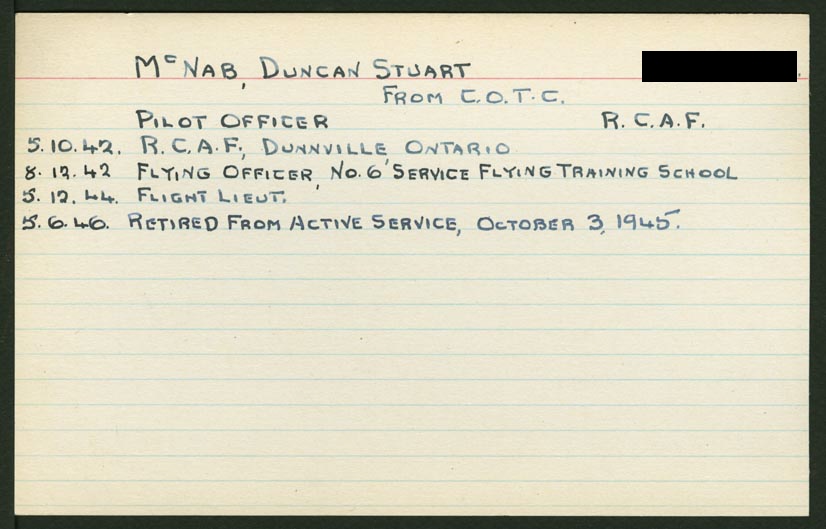 McNab, Duncan Stuart
From C.O.T.C.
Pilot Officer R.C.A.F.
5.10.42. R.C.A.F., Dunnville Ontario
8.12.42 Flying Officer, No. 6 Service Flying Training School
5.12.44. Flight Lieut.
5.6.46. Retired From Active Service, October 3, 1945.